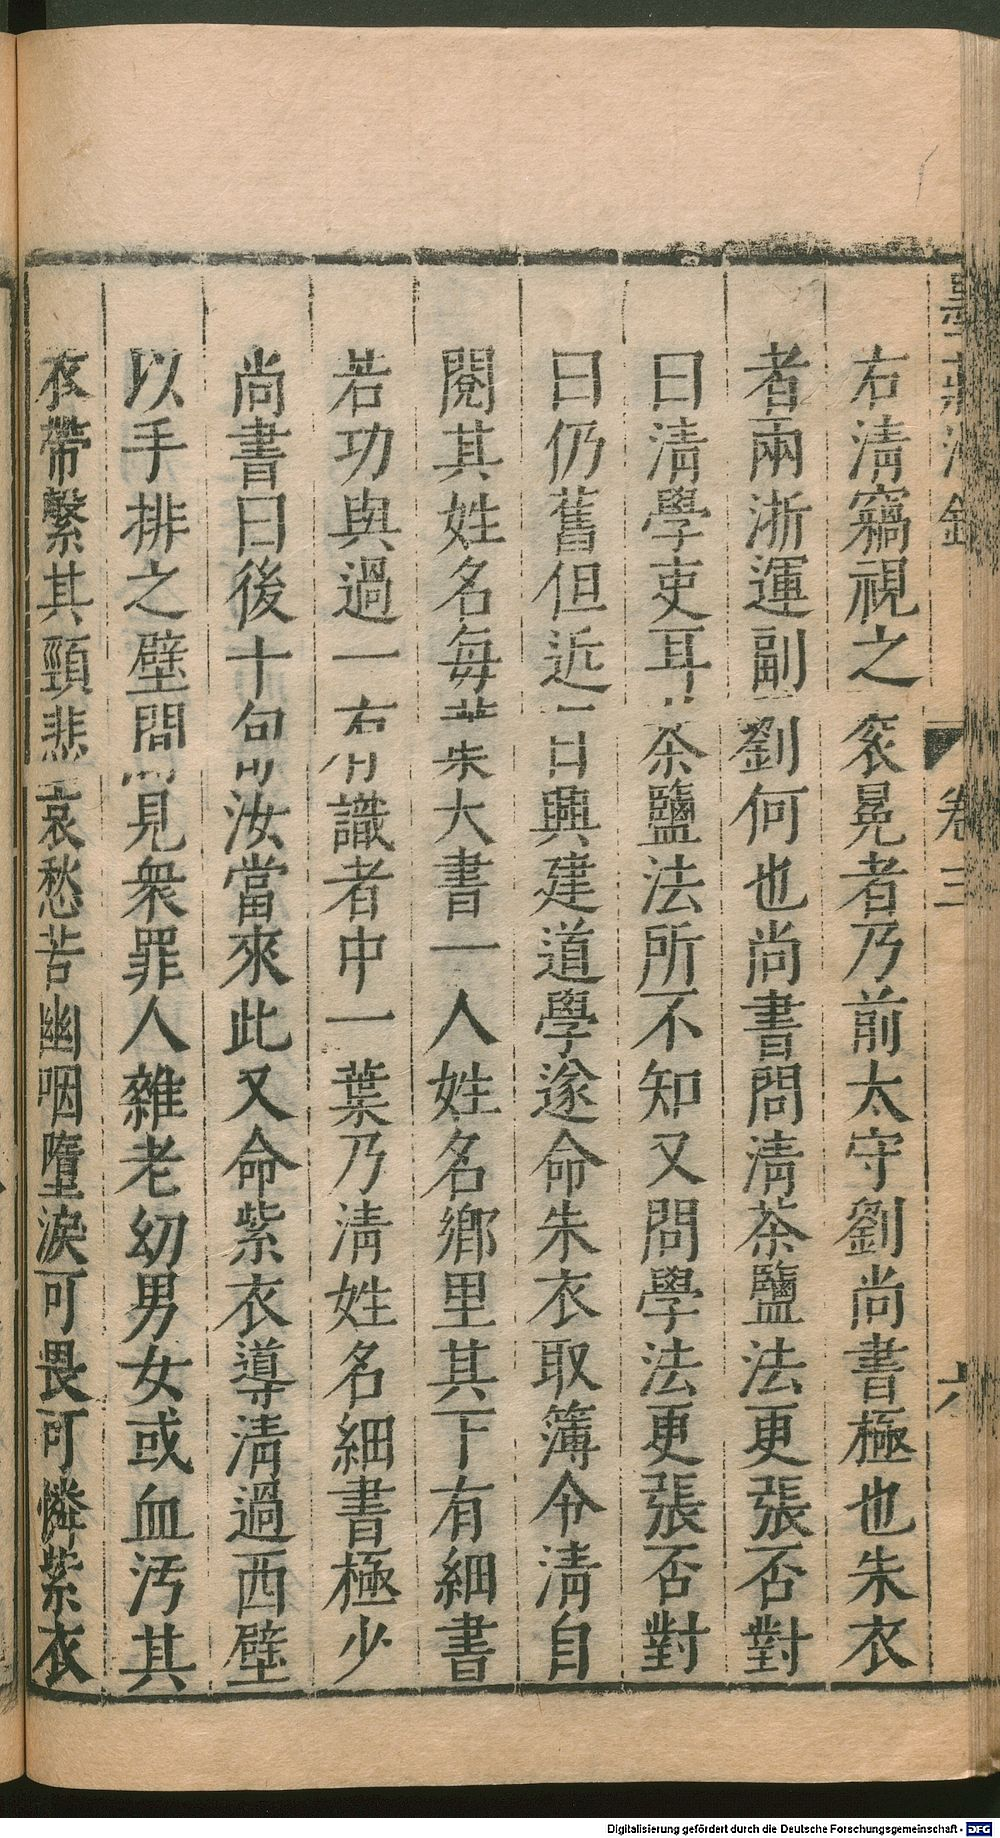 卷三
右清竊視之衮冕者乃前太守劉尚書極也朱衣
者兩浙運副劉何也尚書問清茶鹽法更張否對
曰清學吏耳茶鹽法所不知又問學法更張否對
曰仍舊但近日興建道學遂命朱衣取簿令清自
閱其姓名每葉朱大書一人姓名鄉里其下有細書
若功與過一有識者中一葉乃清姓名細書極少
尚書曰後十旬汝當來此又命紫衣導清過西壁
以手排之壁間見衆罪人雜老幼男女或血汚其
衣帶繫其頸悲哀愁苦幽咽墮淚可畏可憐紫衣
Digitalisierung gefördert durch die Deutsche Forschungsgemeinschaft - DFG